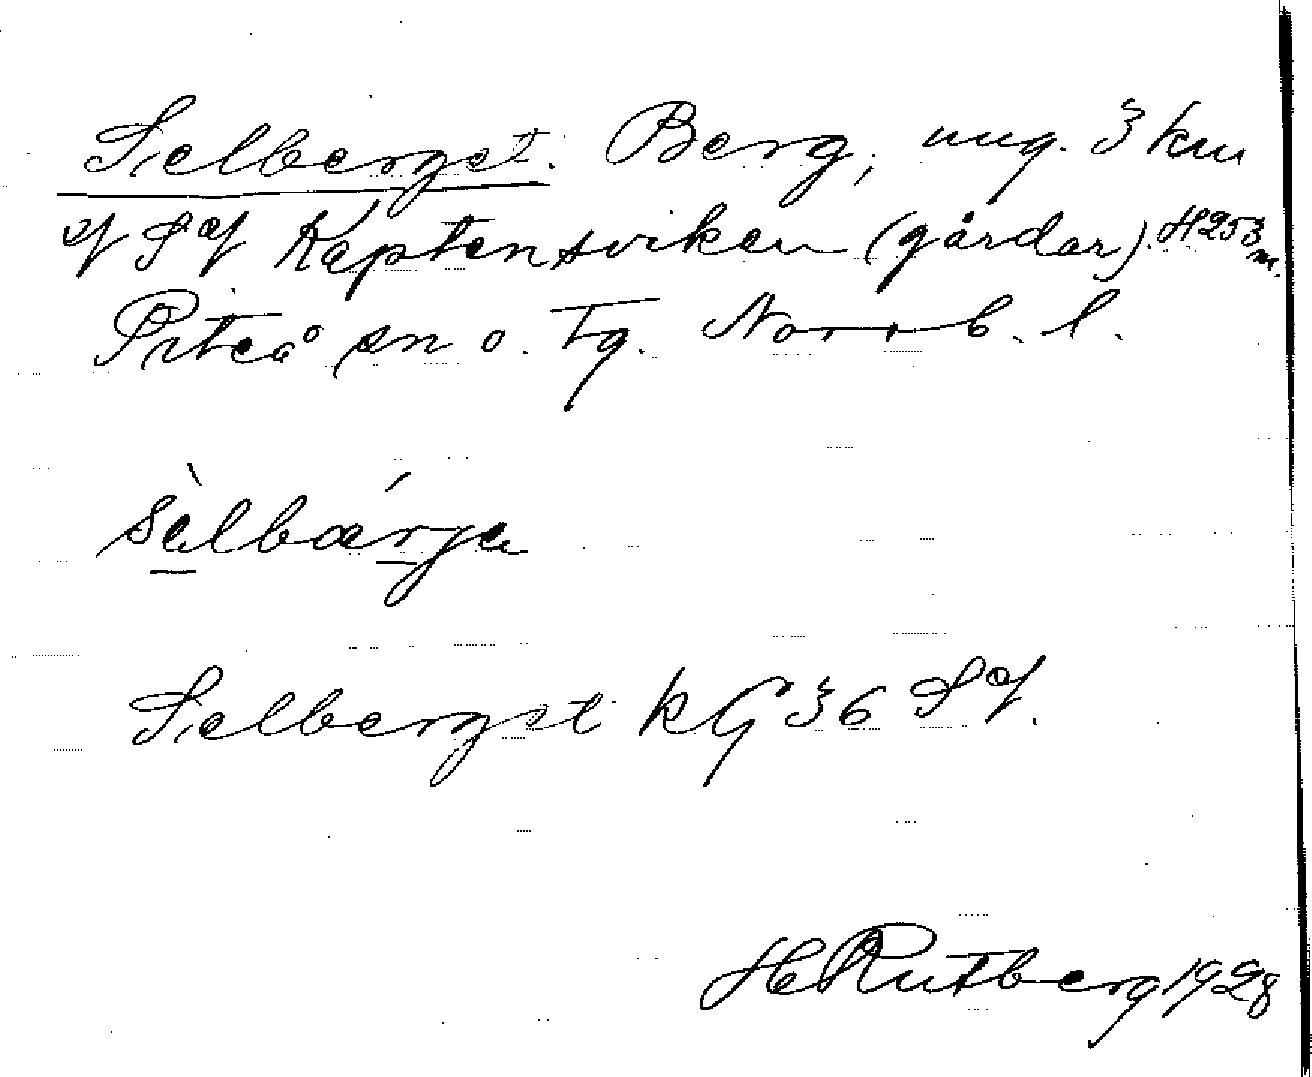 Selberget. Berg, ung. 3 km
af S af Kaptensviken (gårdar). H 253 m.
Piteå sn o. tg. Norrb. l.
sèlbǽrjɐ
Selberget kG 36 S af.
H Rutberg 1928